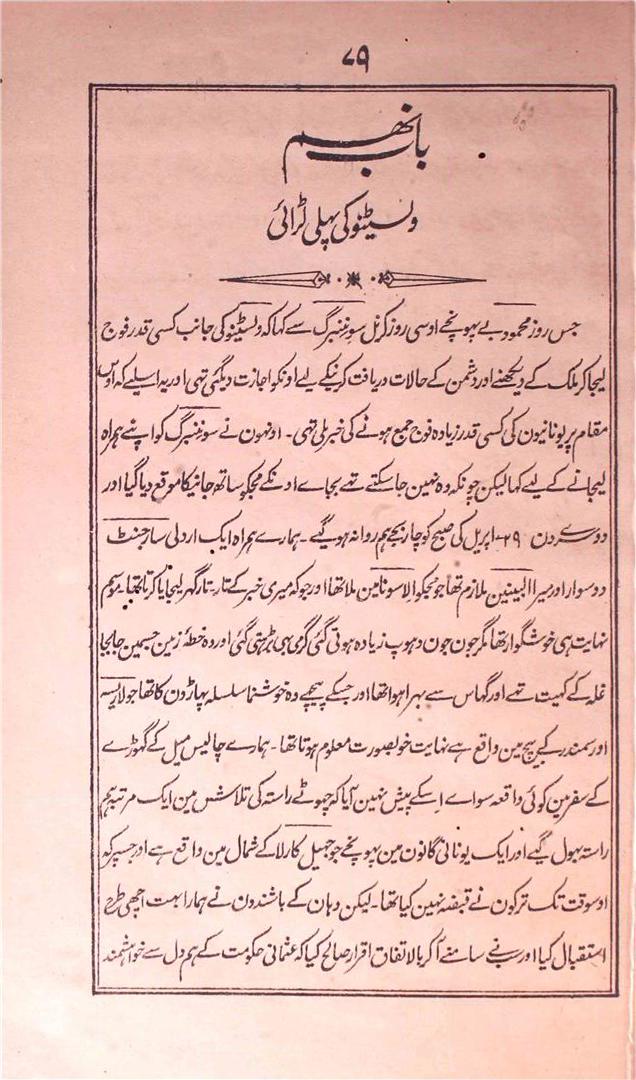 ۷۹
باب نہم
ولسٹنو کی پہلی لڑائی
جس روز محمود بے پہونچے اوسی روز کرنل سوننبرگ سے کہا کہ ولسٹنو کی جانب کسی قدر فوج
لیجا کر ملک کے دیکھنے اور دشمن کے حالات دریافت کرنیکے لیے اونکو اجازت دیگئی تہی اور یہ اسلیے کہ اوس
مقام پر یونانیون کی کسی قدر زیادہ فوج جمع ہونے کی خبر ملی تہی۔ اونہون نے سوننبرگ کو اپنے ہمراہ
لیجانے کے لیے کہا لیکن چونکہ وہ نہین جا سکتے تہے بجاے اونکے مجکو ساتھ جانیکا موقع دیا گیا اور
دوسرے دن ۲۹۔ اپریل کی صبح کو چار بجے ہم روانہ ہوگیے۔ ہمارے ہمراہ ایک اردلی سارجنٹ
دو سوار اور میرا البینین ملازم تھا جو مجکو الاسونا مین ملا تھا اور جو کہ میری خبر کے تار۔ تار گھر لیجایا کرتا تھا۔ موسم
نہایت ہی خوشگوار تھا مگر جون جون دہوپ زیادہ ہوتی گئی گرمی بہی بڑہتی گئی اور وہ خطۂ زمین جسمین جابجا
غلہ کے کہیت تہے اور گہاس سے بہرا ہوا تھا اور جسکے پیچہے وہ خوشنما سلسلہ پہاڑون کا تھا جو لاریسہ
اور سمندر کے بیچ مین واقع ہے نہایت خوبصورت معلوم ہوتا تھا۔ ہمارے چالیس میل کے گہوڑے
کے سفر مین کوئی واقعہ سواے اسکے پیش نہین آیا کہ چہوٹے راستہ کی تلاش مین ایک مرتبہ ہم
راستہ بہول گیے اور ایک یونانی گانون مین پہونچے جو جہیل کارلا کے شمال مین واقع ہے اور جسپر کہ
اوسوقت تک ترکون نے قبضہ نہین کیا تھا۔ لیکن وہان کے باشندون نے ہمارا بہت اچھی طرح
استقبال کیا اور سب نے سامنے آکر بالاتفاق اقرار صالح کیا کہ عثمانی حکومت کے ہم دل سے خواہشمند